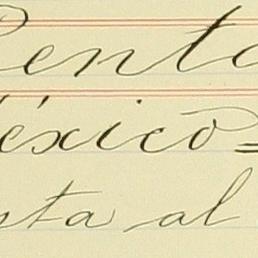 enta
éxico=
sta al